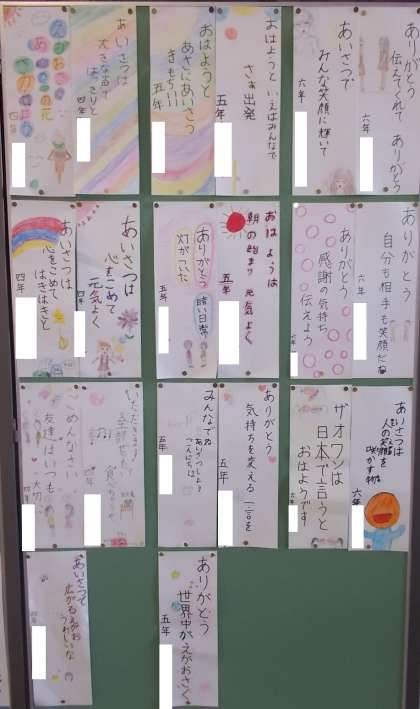 ありがとう
伝えてれて
ありがとう
六年
あいさつで
みんな笑顔に輝いて
六年
おはようと
いえばみんなで
さぁ出発
五年
おはようと
あさにあいさつ
きもちいい
五年
あいさつは
大きな声で
はっきりと
四年
えがおさく
四年
ありがとう
自分も相手も笑顔だね
六年
ありがとう
感謝の気持ち
伝えよう
六年
おはようは
朝の始まり
元気よく
五年
ありがとう
暗い日常
灯がついた
五年
あいさつは
心をこめて
元気よく
四年
あいさつは
心をこめて
はきはきと
四年
あいさつは
人の笑顔を
咲かす物
六年
ザオワンは
日本で言うと
おはようです
六年
ありがとう
気持ちを変える
一言を
五年
みんなでね
あいさつしよう
こんにちは
五年
いただきます
四年
ごめんなさい
友達はいつも
大切
四年
ありがとう
世界中がえがおさく
五年
あいさつで
広がるえがお
うれしいな
四年